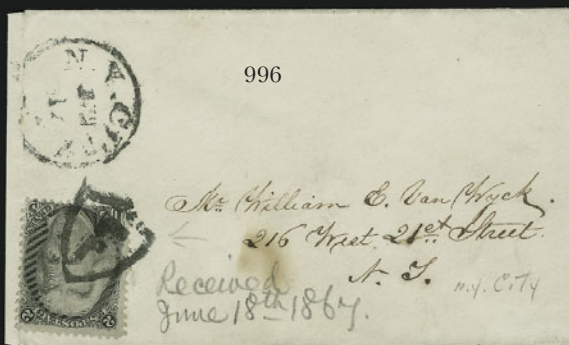 996
N.Y. CITY
Mr. William E. Van Wyck.
216 West. 21st Street.
N. Y. N.Y. City
Received
June 18th 1867.